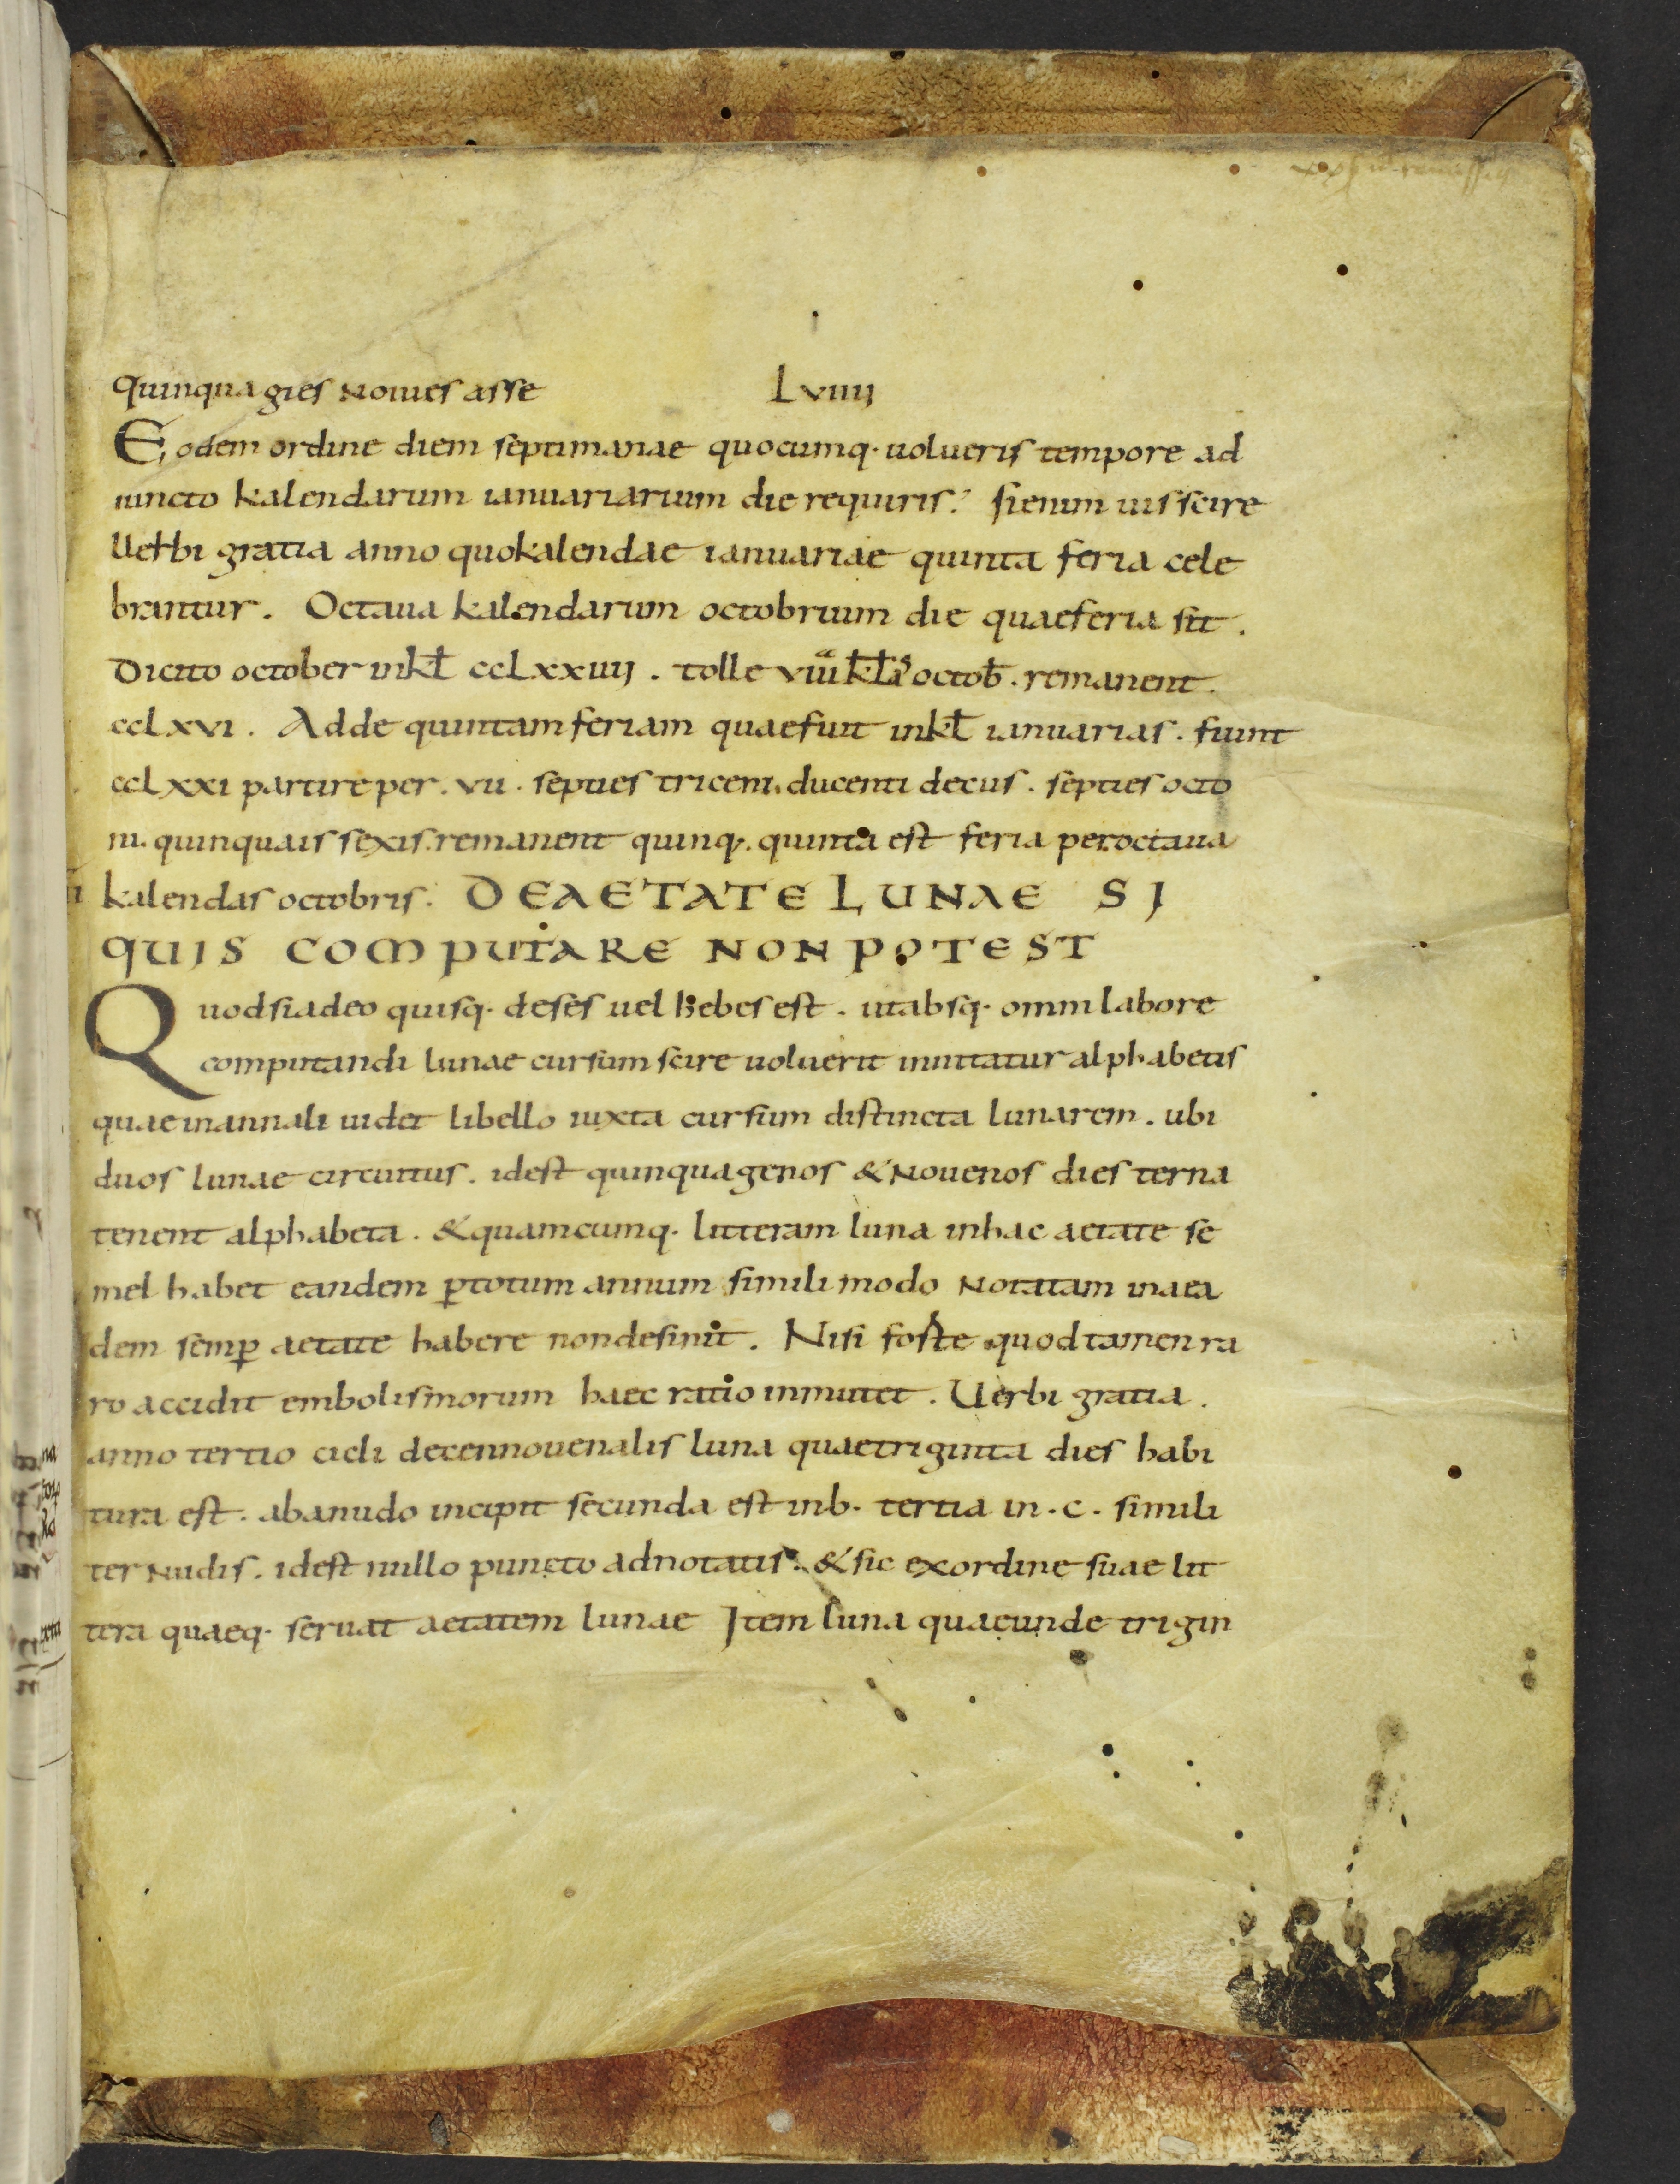 quinquagies Nouies asse Lviiij
Eodem ordine diem septimanae quocumq· uolueris tempore ad
iuncto kalendarum ianuariarum die requiris. si enim uis scire
Uerbi gratia anno quo kalendae ianuariae quinta feria cele
brantur. Octaua kalendarum octobrium die quae feria sit.
Dicito october in kƚ ccLxxiiij. tolle viii kƚas octoƀ. remanent.
ccLxvi. Adde quintam feriam quae fuit in kƚ ianuarias. fiunt
ccLxxi partire per. vii. septies triceni. ducenti decus. septies octo
ni. quinquais sexis. remanent quinq·. quinta est feria per octaua
kalendas octobris. DE AETATE LUNAE SJ
QUJS COMPUTARE NON POTEST
Quod si adeo quisq· deses uel hebes est. ut absq· omni labore
computandi lunae cursum scire uoluerit innitatur alphabetis
quae in annali uidet libello iuxta cursum distincta lunarem. ubi
duos lunae circuitus. id est quinquagenos & Nouenos dies terna
tenent alphabeta. & quamcumq· litteram luna in hac aetate se
mel habet eandem ꝑ totum annum simili modo Notatam in aea
dem semꝑ aetate habere non desinit. Nisi foste quod tamen ra
ro accidit embolismorum haec ratio inmutet. Uerbi gratia.
anno tertio cicli decennouenalis luna quae triginta dies habi
tura est. ab a nudo incipit secunda est in b. tertia in. c. simili
ter Nudis. id est nullo puncto adnotatis. & sic ex ordine suae lit
tera quaeq· seruat aetatem lunae Jtem luna quae unde trigin